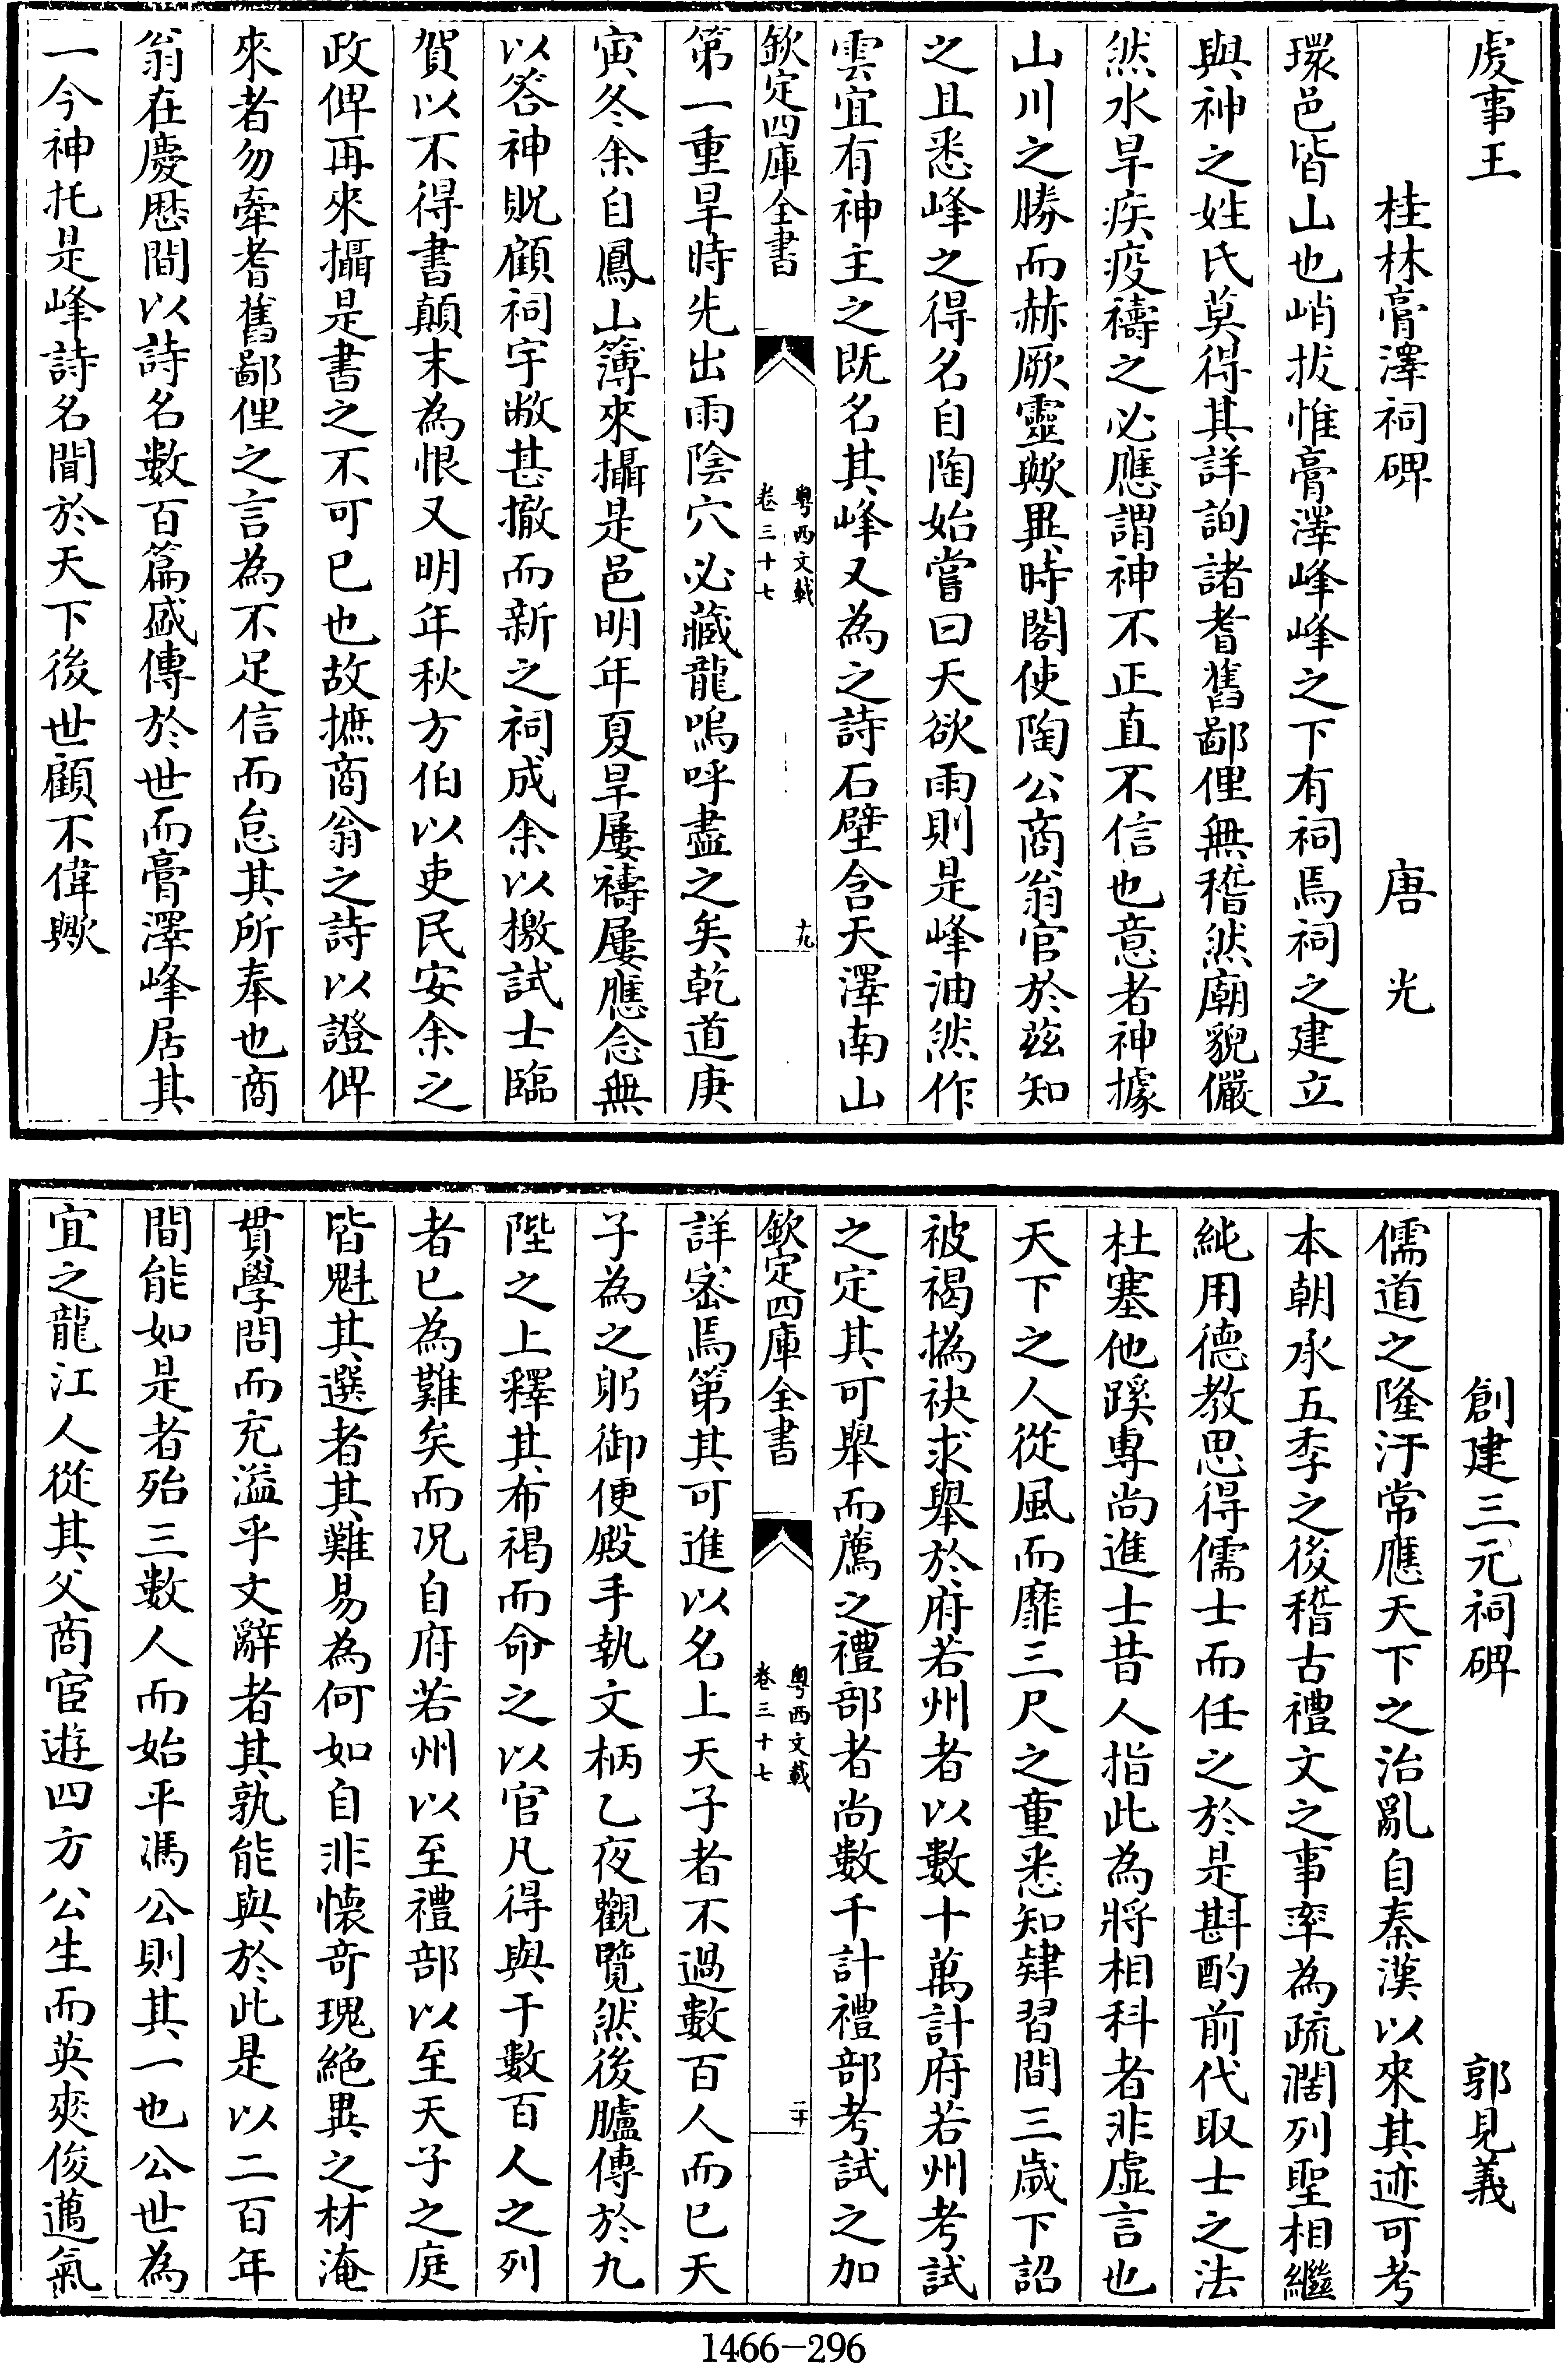 虔事王
桂林膏澤祠碑　唐　光
環邑皆山也峭拔惟膏澤峰峰之下有祠焉祠之建立
與神之姓氏莫得其詳詢諸耆舊鄙俚無稽然廟貌儼
然水旱疾疫禱之必應謂神不正直不信也意者神據
山川之勝而赫厥靈歟異時閣使陶公商翁官於兹知
之且悉峰之得名自陶始嘗曰天欲雨則是峰油然作
雲宜有神主之既名其峰又為之詩石壁含天澤南山
欽定四庫全書
粤西文載
卷三十七
十九
第一重旱時先出雨陰穴必藏龍嗚呼盡之矣乾道庚
寅冬余自鳳山簿來攝是邑明年夏旱屢禱屢應念無
以答神貺顧祠宇敝甚撤而新之祠成余以檄試士臨
賀以不得書顛末為恨又明年秋方伯以吏民安余之
政俾再來攝是書之不可已也故摭商翁之詩以證俾
來者勿牽耆舊鄙俚之言為不足信而怠其所奉也商
翁在慶厯間以詩名數百篇盛傳於世而膏澤峰居其
一今神托是峰詩名聞於天下後世顧不偉歟
創建三元祠碑　郭見義
儒道之隆汙常應天下之治亂自秦漢以來其迹可考
本朝承五季之後稽古禮文之事率為疏濶列聖相繼
純用德教思得儒士而任之於是斟酌前代取士之法
杜塞他蹊專尚進士昔人指此為將相科者非虚言也
天下之人從風而靡三尺之童悉知肄習間三歲下詔
被褐撝袂求舉於府若州者以數十萬計府若州考試
之定其可舉而薦之禮部者尚數千計禮部考試之加
欽定四庫全書
粤西文載
卷三十七
二十
詳密焉第其可進以名上天子者不過數百人而已天
子為之躬御便殿手執文柄乙夜觀覽然後臚傳於九
陛之上釋其布褐而命之以官凡得與于數百人之列
者已為難矣而况自府若州以至禮部以至天子之庭
皆魁其選者其難易為何如自非懷竒瑰絶異之材淹
貫學問而充溢乎文辭者其孰能與於此是以二百年
間能如是者殆三數人而始平馮公則其一也公世為
宜之龍江人從其父商宦遊四方公生而英爽俊邁氣
1466-296